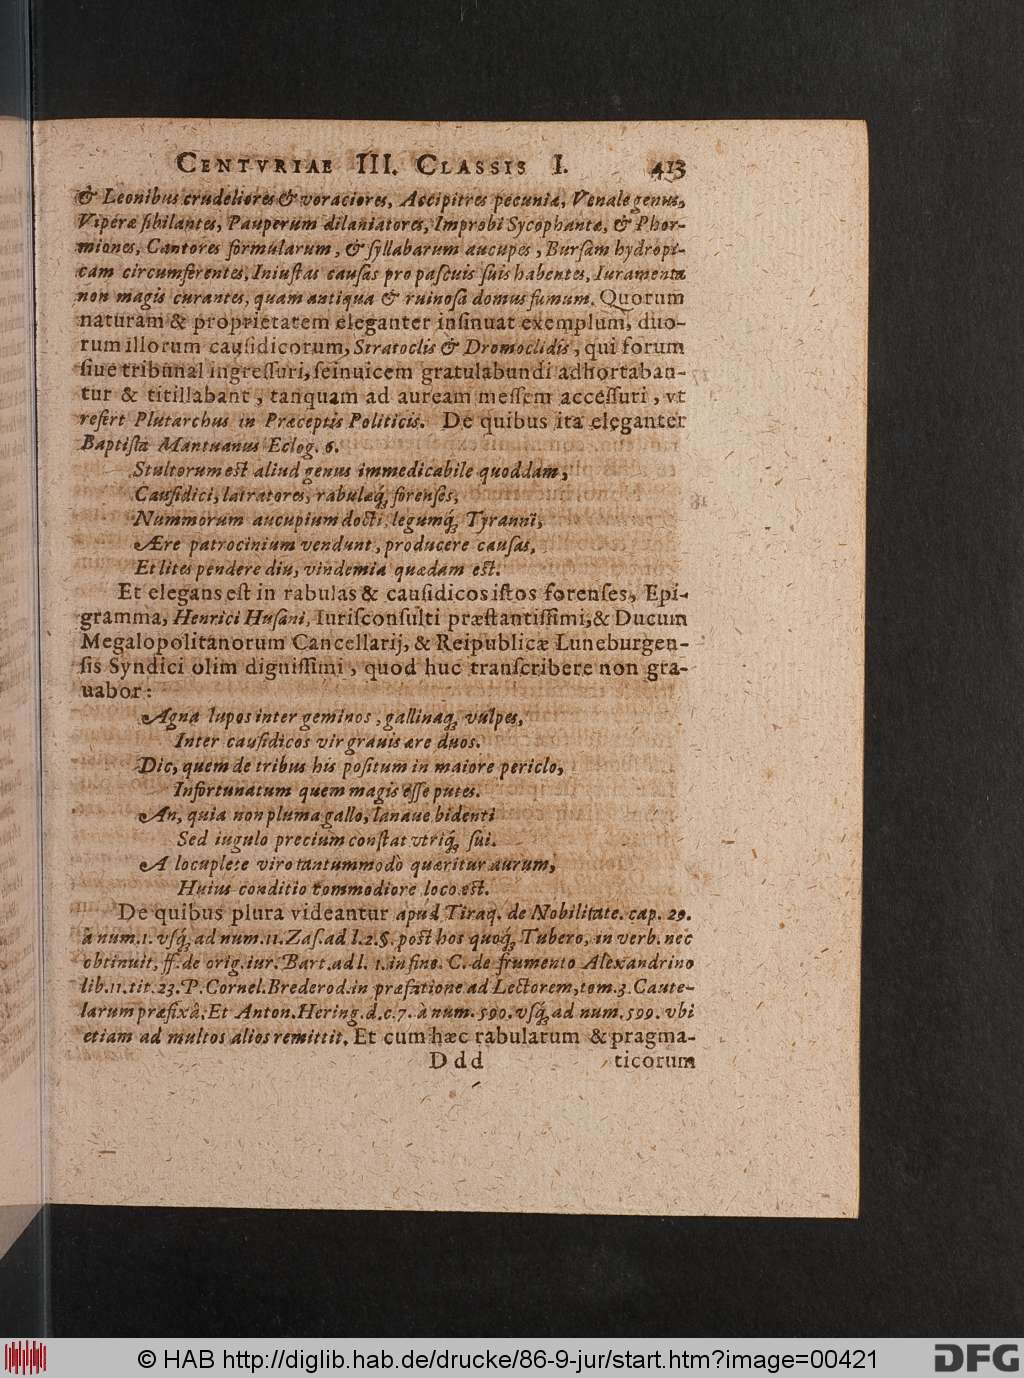 CENTVRIAE III. CLASSIS I. 413
& Leonibus crudeliores & voraciores, Accipitres pecuniæ, Venale genus,
Viperæ ſibilantes, Pauperum dilaniatores, Improbi Sycophantæ, & Phor-
miones, Cantores formularum, & ſyllabarum aucupes, Burſam hydropi-
cam circumferentes, Iniuſtas cauſas pro paſcuis ſuis habentes, Iuramenta
non magis curantes, quam antiqua & ruinoſa domus fumum. Quorum
naturam & proprietatem eleganter inſinuat exemplum, duo-
rum illorum cauſidicorum, Stratoclis & Dromoclidis, qui forum
ſiue tribunal ingreſſuri, ſeinuicem gratulabundi adhortaban-
tur & titillabant, tanquam ad auream meſſem acceſſuri, vt
refert Plutarchus in Præceptis Politicis. De quibus ita eleganter
Baptiſta Mantuanus Eclog. 6.
Stultorum eſt aliud genus immedicabile quoddam,
Cauſidici, latratores, rabulæq́; forenſes,
Nummorum aucupium docti, legumq́; Tyranni,
Ære patrocinium vendunt, producere cauſas,
Et lites pendere diu, vindemia quædam eſt.
Et elegans eſt in rabulas & cauſidicos iſtos forenſes, Epi-
gramma, Henrici Huſani, Iuriſconſulti præſtantiſſimi, & Ducum
Megalopolitanorum Cancellarij, & Reipublicæ Luneburgen-
ſis Syndici olim digniſſimi, quod huc tranſcribere non gra-
uabor:
Agna lupos inter geminos, gallinaq́; vulpes,
Inter cauſidicos vir grauis ære duos.
Dic, quem de tribus his poſitum in maiore periclo,
Infortunatum quem magis eſſe putes.
An, quia non pluma gallo, lanaue bidenti
Sed iugulo precium conſtat vtriq́; ſui.
A locuplete viro tantummodò quæritur aurum,
Huius conditio commodiore loco eſt.
De quibus plura videantur apud Tiraq. de Nobilitate. cap. 29.
à num. 1. vſq́; ad num. 11. Zaſ. ad l. 2. §. poſt hos quoq́; Tubero, in verb. nec
obtinuit, ff. de orig. iur. Bart. ad l. 1. in fine. C. de frumento Alexandrino
lib. 11. tit. 23. P. Cornel. Brederod. in præfatione ad Lectorem, tom. 3. Caute-
larum præfixâ, Et Anton. Hering. d. c. 7. à num. 590. vſq́; ad num. 599. vbi
etiam ad multos alios remittit. Et cum hæc rabularum & pragma-
Ddd ticorum
© HAB http://diglib.hab.de/drucke/86-9-jur/start.htm?image=00421
DFG